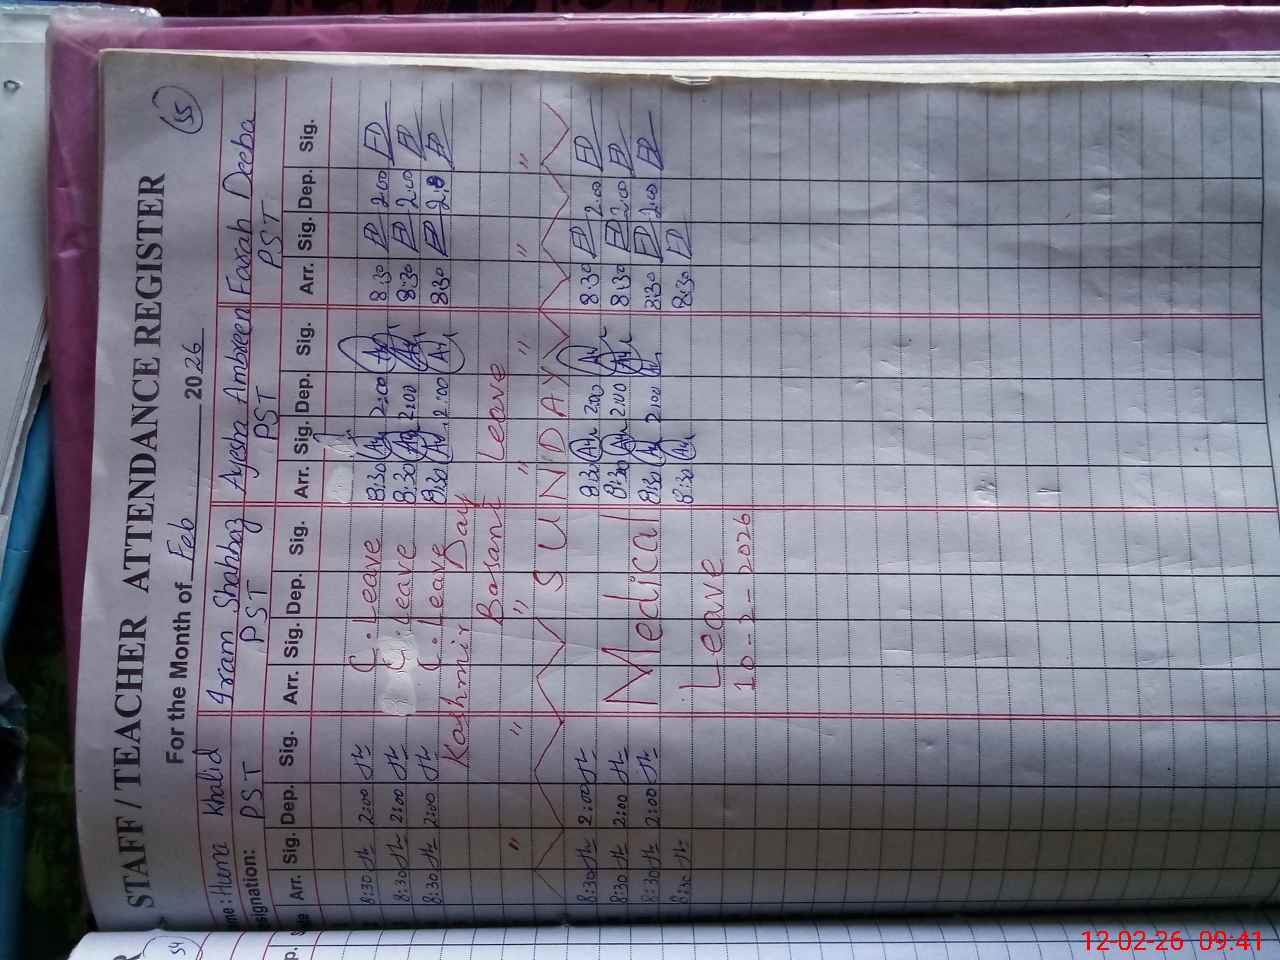 55
STAFF / TEACHER ATTENDANCE REGISTER
For the Month of Feb 2026
me: Huma Khalid Iram Shahbaz Ayesha Ambreen Farah Deeba
signation: PST PST PST PST
Arr. Sig. Dep. Sig. Arr. Sig. Dep. Sig. Arr. Sig. Dep. Sig. Arr. Sig. Dep. Sig.
8:30 2:00 C. Leave 8:30 2:00 8:30 2:00
8:30 2:00 C. Leave 8:30 2:00 8:30 2:00
8:30 2:00 C. Leave 8:30 2:00 8:30 2:0
Kashmir Day
Basant Leave
" " " " " " "
SUNDAY
8:30 2:00 8:30 2:00 8:30 2:00
8:30 2:00 Medical 8:30 2:00 8:30 2:00
8:30 2:00 8:30 2:00 8:30 2:00
8:30 Leave 8:30 8:30
10-2-2026
54
12-02-26 09:41